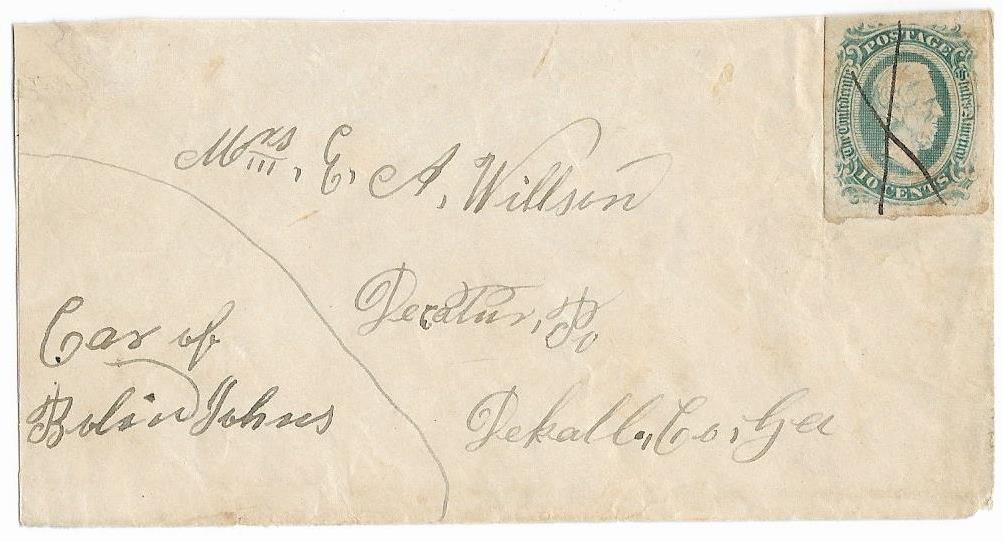 POSTAGE
The Confederate States of America
10 CENTS
Mrs, E, A, Willson
Decatur, Po
Dekalb, Co, Ga
Car of
Bolin Johns